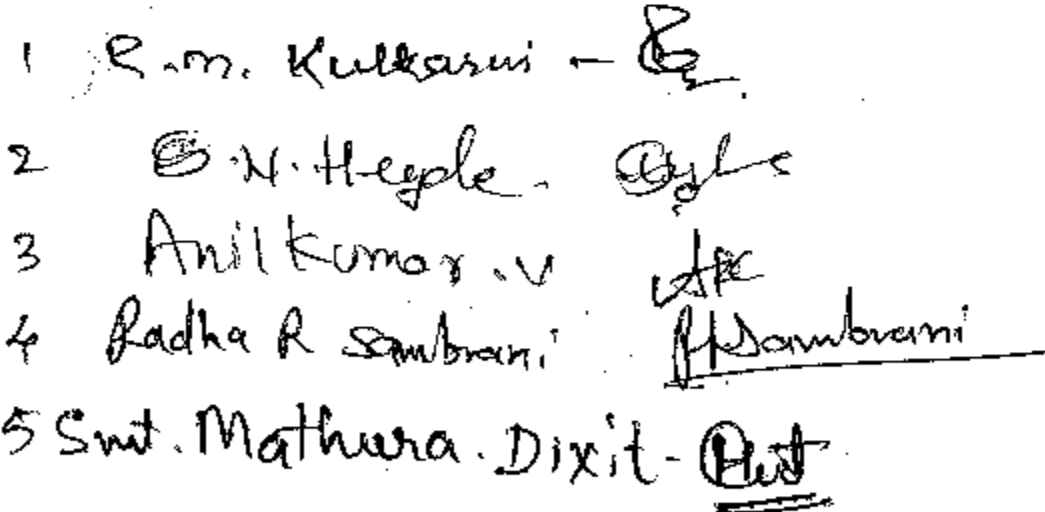 1 R.M. Kulkarni -
2 G.N. Hegde.
3 Anil Kumar .V
4 Radha R Sambrani RSambrani
5 Smt. Mathura. Dixit -